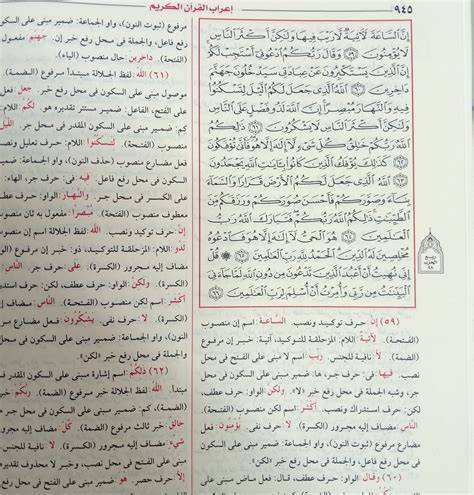 ٩٤٥
إعراب القرآن الكريم
إِنَّ السَّاعَةَ لَآتِيَةٌ لَا رَيْبَ فِيهَا وَلَٰكِنَّ أَكْثَرَ النَّاسِ
لَا يُؤْمِنُونَ ﴿٥٩﴾ وَقَالَ رَبُّكُمُ ادْعُونِي أَسْتَجِبْ لَكُمْ
إِنَّ الَّذِينَ يَسْتَكْبِرُونَ عَنْ عِبَادَتِي سَيَدْخُلُونَ جَهَنَّمَ
دَاخِرِينَ ﴿٦٠﴾ اللَّهُ الَّذِي جَعَلَ لَكُمُ اللَّيْلَ لِتَسْكُنُوا
فِيهِ وَالنَّهَارَ مُبْصِرًا إِنَّ اللَّهَ لَذُو فَضْلٍ عَلَى النَّاسِ
وَلَٰكِنَّ أَكْثَرَ النَّاسِ لَا يَشْكُرُونَ ﴿٦١﴾ ذَٰلِكُمُ اللَّهُ
رَبُّكُمْ خَالِقُ كُلِّ شَيْءٍ لَا إِلَٰهَ إِلَّا هُوَ فَأَنَّىٰ تُؤْفَكُونَ
﴿٦٢﴾ كَذَٰلِكَ يُؤْفَكُ الَّذِينَ كَانُوا بِآيَاتِ اللَّهِ يَجْحَدُونَ
﴿٦٣﴾ اللَّهُ الَّذِي جَعَلَ لَكُمُ الْأَرْضَ قَرَارًا وَالسَّمَاءَ
بِنَاءً وَصَوَّرَكُمْ فَأَحْسَنَ صُوَرَكُمْ وَرَزَقَكُمْ مِنَ
الطَّيِّبَاتِ ذَٰلِكُمُ اللَّهُ رَبُّكُمْ فَتَبَارَكَ اللَّهُ رَبُّ
الْعَالَمِينَ ﴿٦٤﴾ هُوَ الْحَيُّ لَا إِلَٰهَ إِلَّا هُوَ فَادْعُوهُ
مُخْلِصِينَ لَهُ الدِّينَ الْحَمْدُ لِلَّهِ رَبِّ الْعَالَمِينَ ﴿٦٥﴾ قُلْ
إِنِّي نُهِيتُ أَنْ أَعْبُدَ الَّذِينَ تَدْعُونَ مِنْ دُونِ اللَّهِ لَمَّا جَاءَنِيَ
الْبَيِّنَاتُ مِنْ رَبِّي وَأُمِرْتُ أَنْ أُسْلِمَ لِرَبِّ الْعَالَمِينَ ﴿٦٦﴾
(٥٩) إن حرف توكيد ونصب. الساعة: اسم إن منصوب
(الفتحة). لآتية: اللام: المزحلقة للتوكيد، آتية: خبر إن مرفوع
(الضمة). لا: نافية للجنس. ريب: اسم لا مبني على الفتح في محل
نصب. فيها: في: حرف جر، ها: ضمير مبني على السكون في محل
جر، وشبه الجملة في محل رفع خبر «لا». ولكن: الواو: حرف عطف،
لكن: حرف استدراك ونصب. أكثر: اسم لكن منصوب (الفتحة).
الناس: مضاف إليه مجرور (الكسرة). لا: حرف نفي. يؤمنون: فعل
مضارع مرفوع (ثبوت النون)، واو الجماعة: ضمير مبني على السكون
في محل رفع فاعل، والجملة في محل رفع خبر «لكن».
(٦٠) وقال: الواو: حرف عطف، قال: فعل ماض مبني على
مرفوع (ثبوت النون)، واو الجماعة: ضمير مبني على السكون في محل
رفع فاعل، والجملة في محل رفع خبر إن. جهنم: مفعول
(الفتحة). داخرين: حال منصوب (الياء).
(٦١) الله: لفظ الجلالة مبتدأ مرفوع (الضمة).
موصول مبني على السكون في محل رفع خبر. جعل: فعل
على الفتح، الفاعل: ضمير مستتر تقديره هو. لكم: اللام:
كم: ضمير مبني على السكون في محل جر. الليل
منصوب (الفتحة). لتسكنوا: اللام: حرف تعليل ونصب
فعل مضارع منصوب (حذف النون)، واو الجماعة: ضمير
السكون في محل رفع فاعل. فيه: في: حرف جر، الهاء:
على الكسر في محل جر. والنهار: الواو: حرف عطف،
معطوف منصوب (الفتحة). مبصرا: مفعول به ثان منصوب
إن: حرف توكيد ونصب. الله: لفظ الجلالة اسم إن منصوب
لذو: اللام: المزحلقة للتوكيد، ذو: خبر إن مرفوع (الواو).
مضاف إليه مجرور (الكسرة). على: حرف جر. الناس:
مجرور (الكسرة). ولكن: الواو: حرف عطف، لكن:
أكثر: اسم لكن منصوب (الفتحة). الناس: مضاف
(الكسرة). لا: حرف نفي. يشكرون: فعل مضارع مرفوع
النون)، واو الجماعة: ضمير مبني على السكون في محل
والجملة في محل رفع خبر «لكن».
(٦٢) ذلكم: اسم إشارة مبني على السكون المقدر في
مبتدأ. الله: لفظ الجلالة خبر مرفوع (الضمة). ربكم: خبر
(الضمة)، كم: ضمير مبني على السكون في محل جر
خالق: خبر ثالث مرفوع (الضمة). كل: مضاف إليه مجرور
شيء: مضاف إليه مجرور (الكسرة). لا: نافية للجنس.
مبني على الفتح في محل نصب، وخبر لا محذوف تقديره
إلا: حرف حصر. هو: